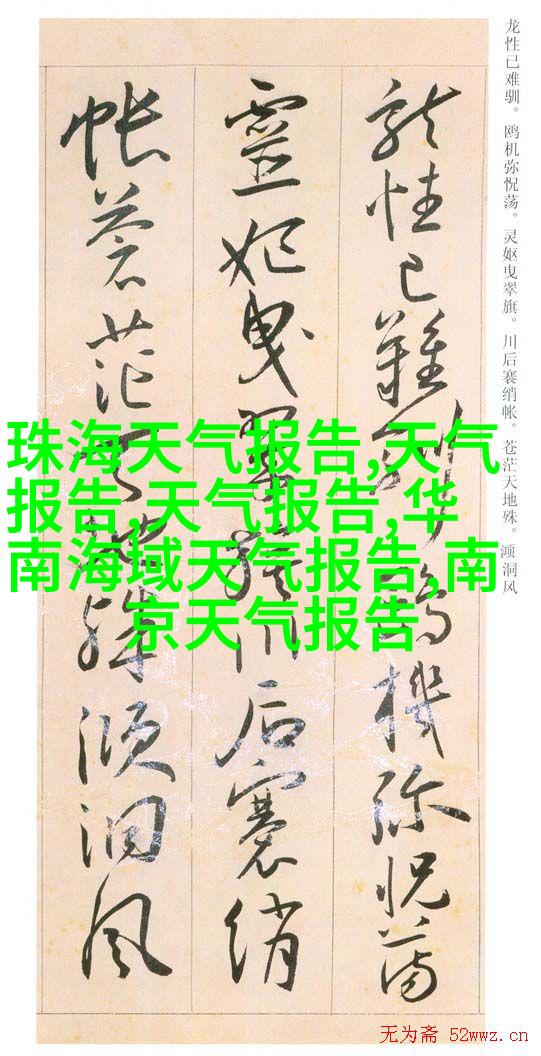 龍性已難馴鷗機弥怳蕩
靈妃曳翠旗川后褰綃
帳蒼茫天地殊澒洞風
龙性已难驯。鸥机弥怳荡。灵妪曳翠旗。川后褰绡帐。苍茫天地殊。澒洞风
珠海天气报告,天气
报告,天气报告,华
南海域天气报告,南
京天气报告
无为斋 52wwz.cn